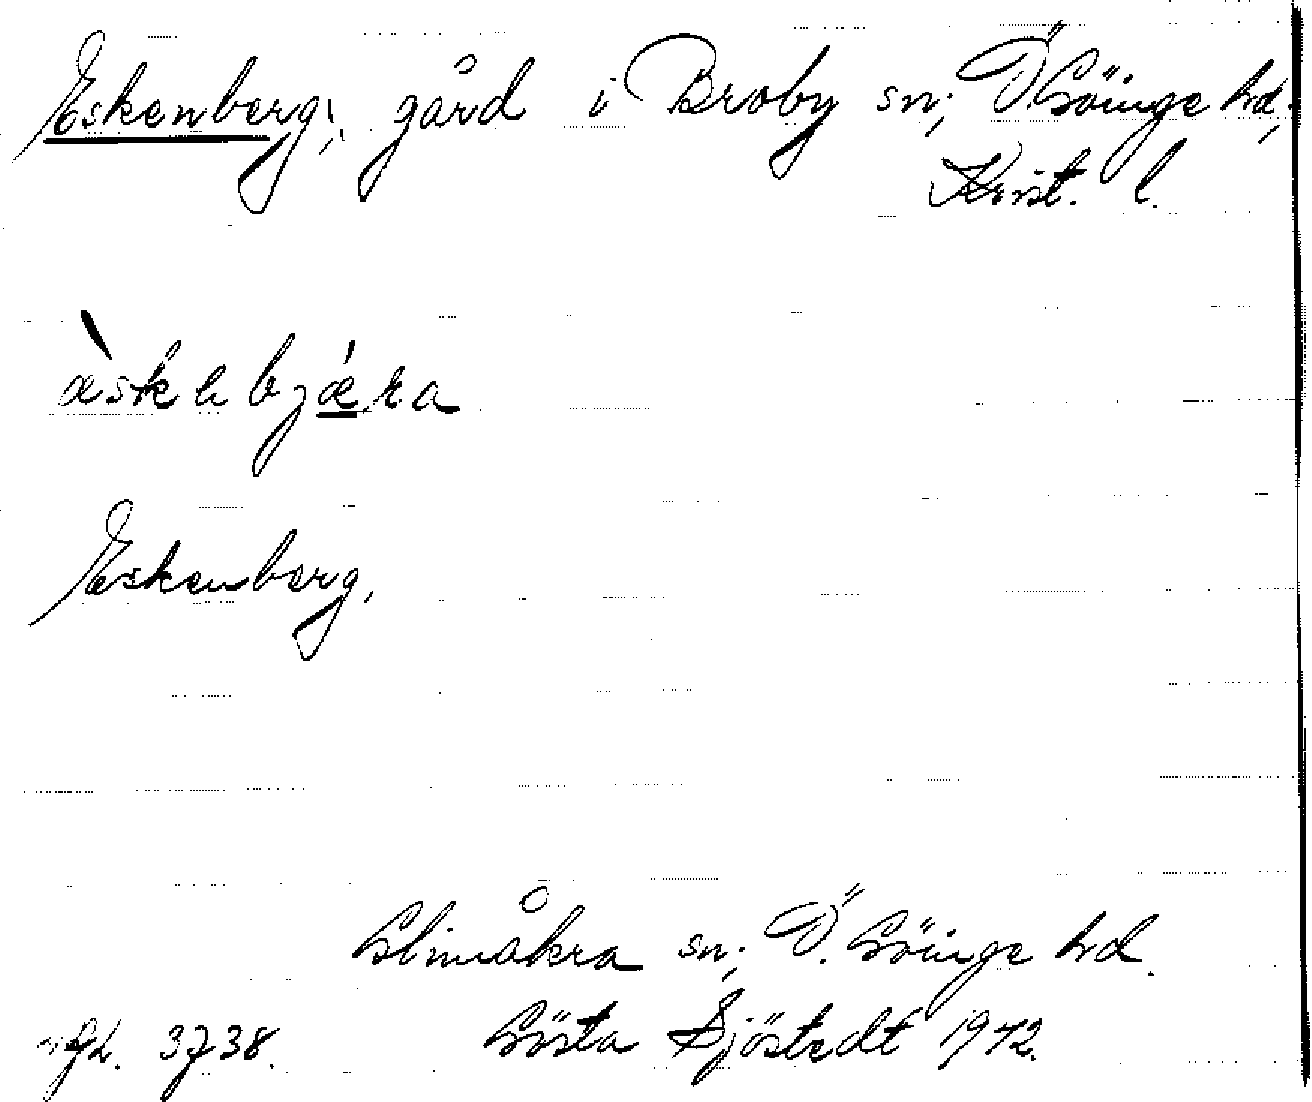 Eskenberg; gård i Broby sn; Ö. Göinge hd;
Krist. l.
æ̀skebjǽra
Eskenberg,
Glimåkra sn; Ö. Göinge hd.
3738. Gösta Sjöstedt 1942.